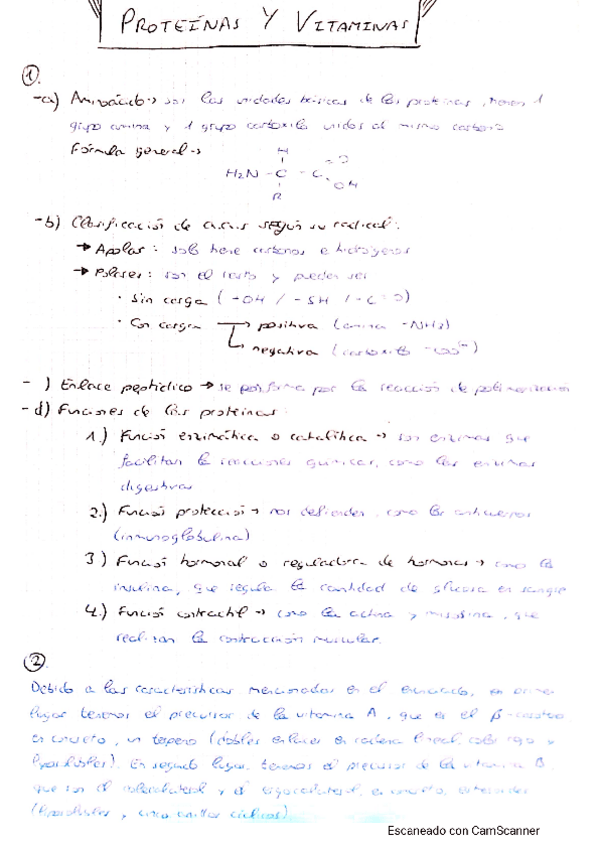 PROTEÍNAS Y VITAMINAS
①
-a) Aminoácido → son las unidades básicas de las proteínas, tienen 1
grupo amina y 1 grupo carboxilo unidos al mismo carbono
Fórmula general →
H
H₂N - C - C = O
OH
R
-b) Clasificación de según su radical:
→ Apolar: solo tiene carbonos e hidrógenos
→ Polares: son el resto y pueden ser
· Sin carga (-OH / -SH / -C=O)
· Con carga → positiva (amina -NH₂)
→ negativa (carboxilo -COO⁻)
- ) Enlace peptídico → se por la reacción de
-d) Funciones de las proteínas:
1.) Función enzimática o catalítica → son enzimas que
facilitan la reacciones químicas, como las enzimas
digestivas
2.) Función protección → nos defienden, como los anticuerpos
(inmunoglobulina)
3) Función hormonal o reguladora de hormonas → como la
insulina, que regula la cantidad de glucosa en sangre
4.) Función contráctil → como la actina y miosina, que
realizan la contracción muscular.
②.
Debido a las características mencionadas en el enunciado, en primer
lugar tenemos el precursor de la vitamina A, que es el β-caroteno
en concreto, un terpeno (dobles enlaces en cadena lineal, color rojo y
liposolubles). En segundo lugar, tenemos el precursor de la vitamina D,
que son el y el en concreto, esteroides
(liposolubles, cinco anillos cíclicos)
Escaneado con CamScanner